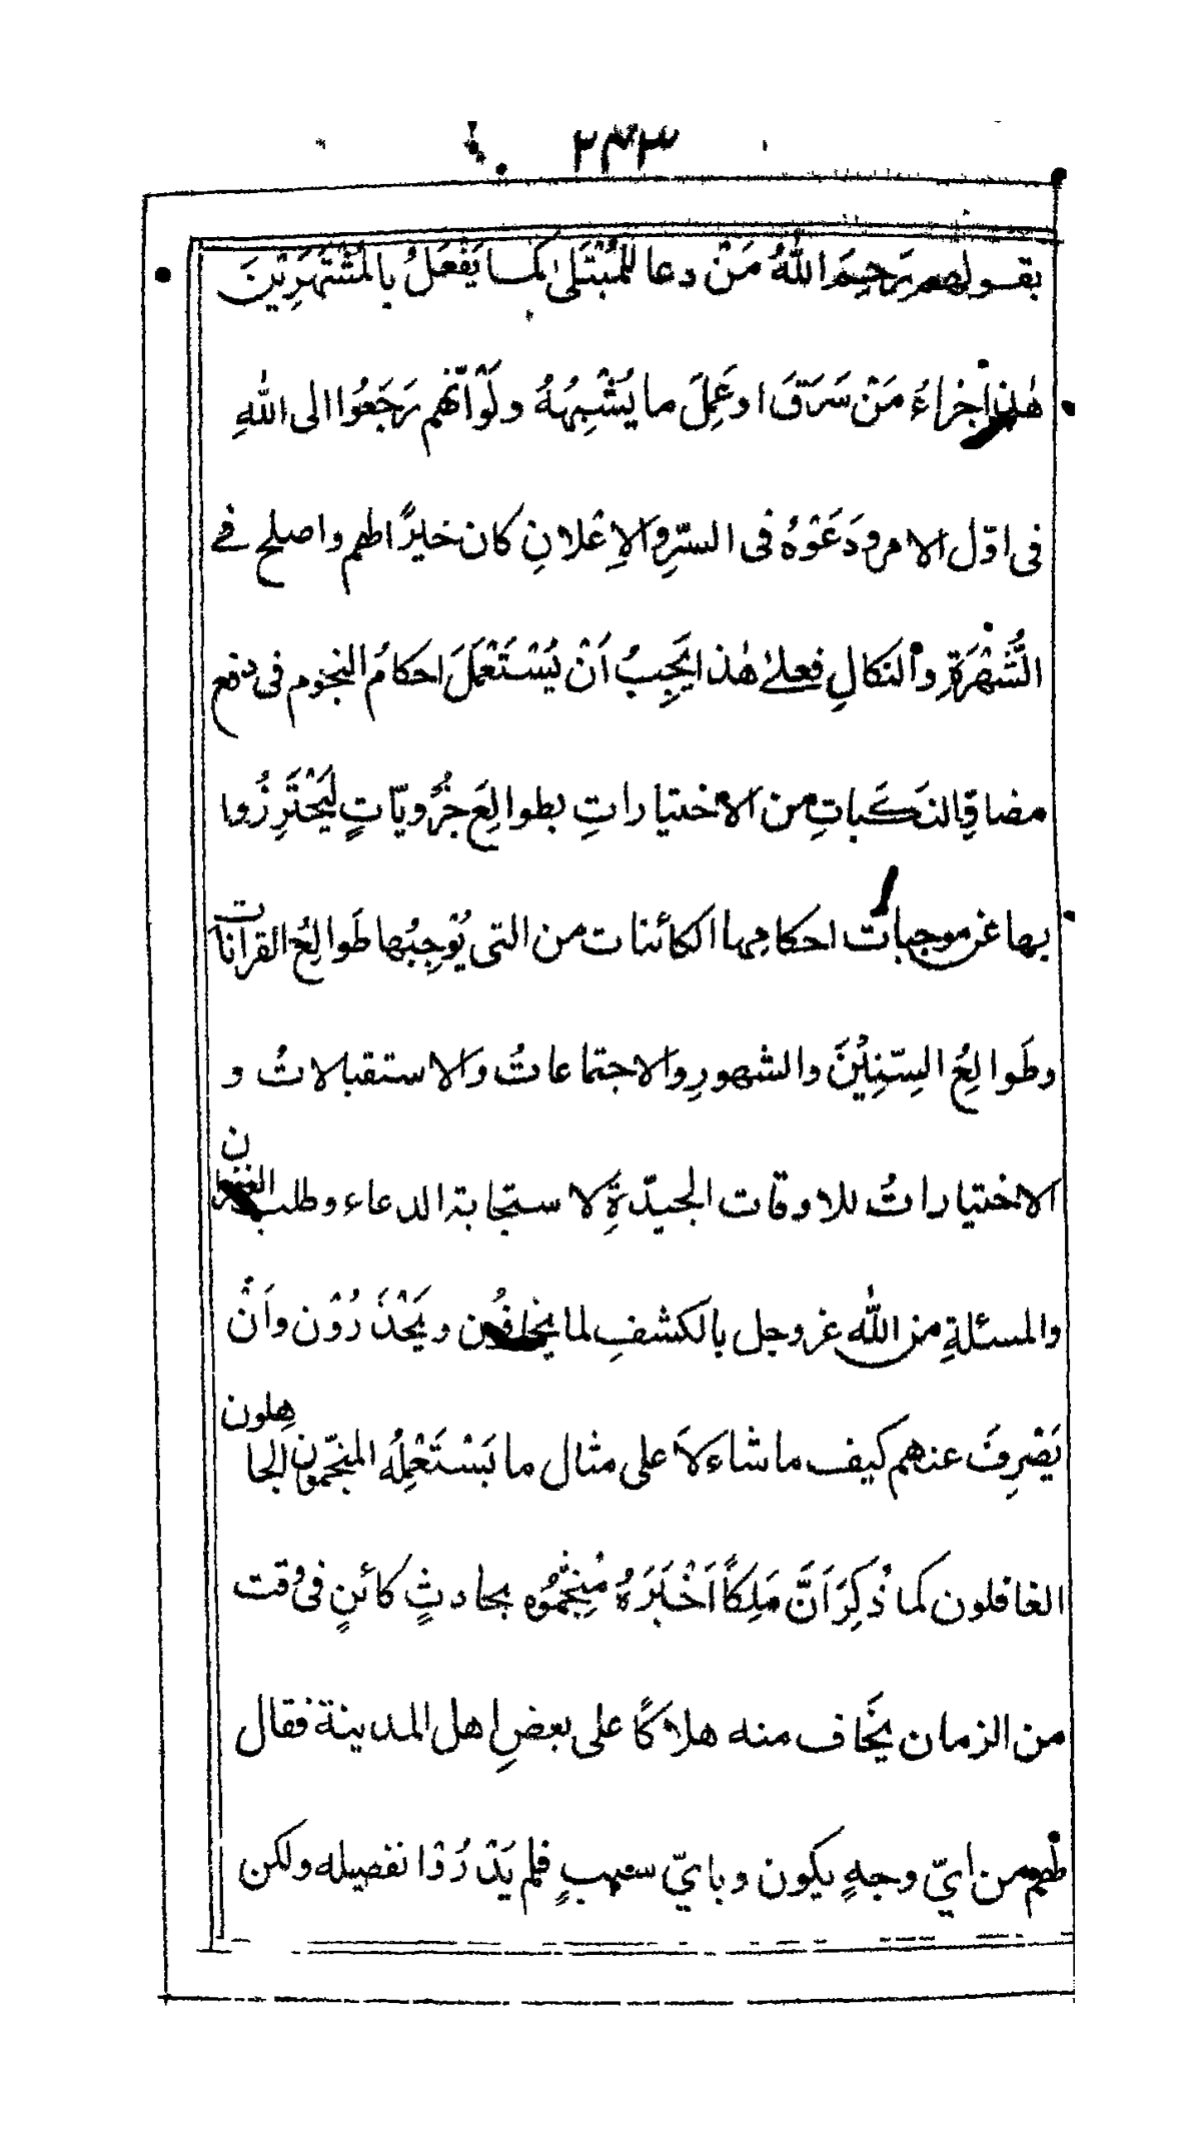 ٢٤٣
بقولهم رَحِمَ اللهُ مَنْ دعا للمُبْتَلىٰ كما يَفْعَلُ بالمُشْتَهَرِيْنَ
هٰذا جزاءُ مَنْ سَرَقَ او عَمِلَ ما يُشْبِهُهُ ولَوْ اَنّهم رَجَعُوا الى اللهِ
فى اوّل الامر ودَعَوْهُ فى السّرِ والاِعْلانِ كان خيرًا لهم واصلح فے
الشُّهْرَةِ والنكالِ فعلےٰ هٰذا يَجِبُ اَنْ يُسْتَعْمَلَ احكامُ النجوم فى دفع
مضاقِ النَكَباتِ من الاختياراتِ بطوالِعَ جُزْويّاتٍ ليَحْتَرِزُوا
بها عن موجبات احكامِها الكائنات من التى يُوْجِبُها طَوالِعُ القرانات
وطَوالِعُ السِّنِيْنَ والشهورِ والاجتماعاتُ والاستقبالاتُ و
الاختياراتُ للاوقات الجيدّةِ لاستجابة الدعاء وطلب الغفران
والمسئلةِ من الله عز وجل بالكشفِ لما يخافُون ويَحْذَرُوْن واَنْ
يَصْرِفَ عنهم كيف ما شاء لاَ على مثال ما يَسْتَعْمِلُه المنجّمون الجاهلون
الغافلون كما ذُكِرَ اَنَّ مَلِكاً اَخْبَرَهُ مُنَجِّمُوْه بحادثٍ كائنٍ فى وقت
من الزمان يَخَاف منه هلاكًا على بعضِ اهل المدينة فقال
لهم من ايّ وجهٍ يكون وبايّ سببٍ فلم يَدْرُوْا تفصيله ولكن